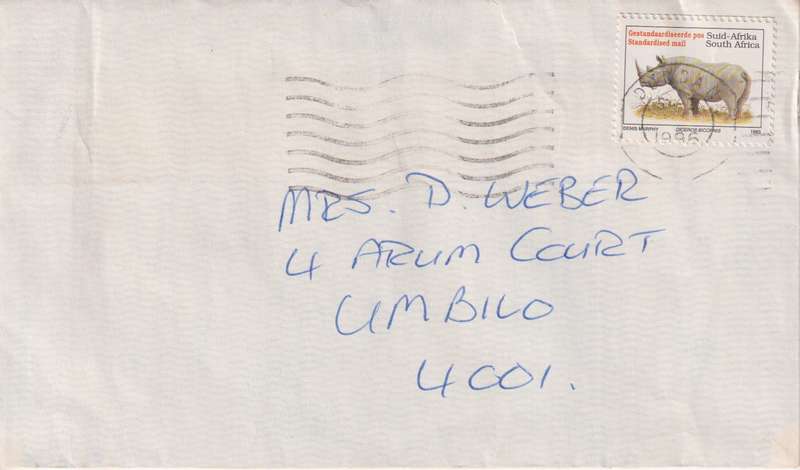 Gestandaardiseerde pos Suid-Afrika
Standardised mail South Africa
DENIS MURPHY DICEROS BICORNIS 1993
1996
MRS. D. WEBER
4 ARUM COURT
UMBILO
4001.